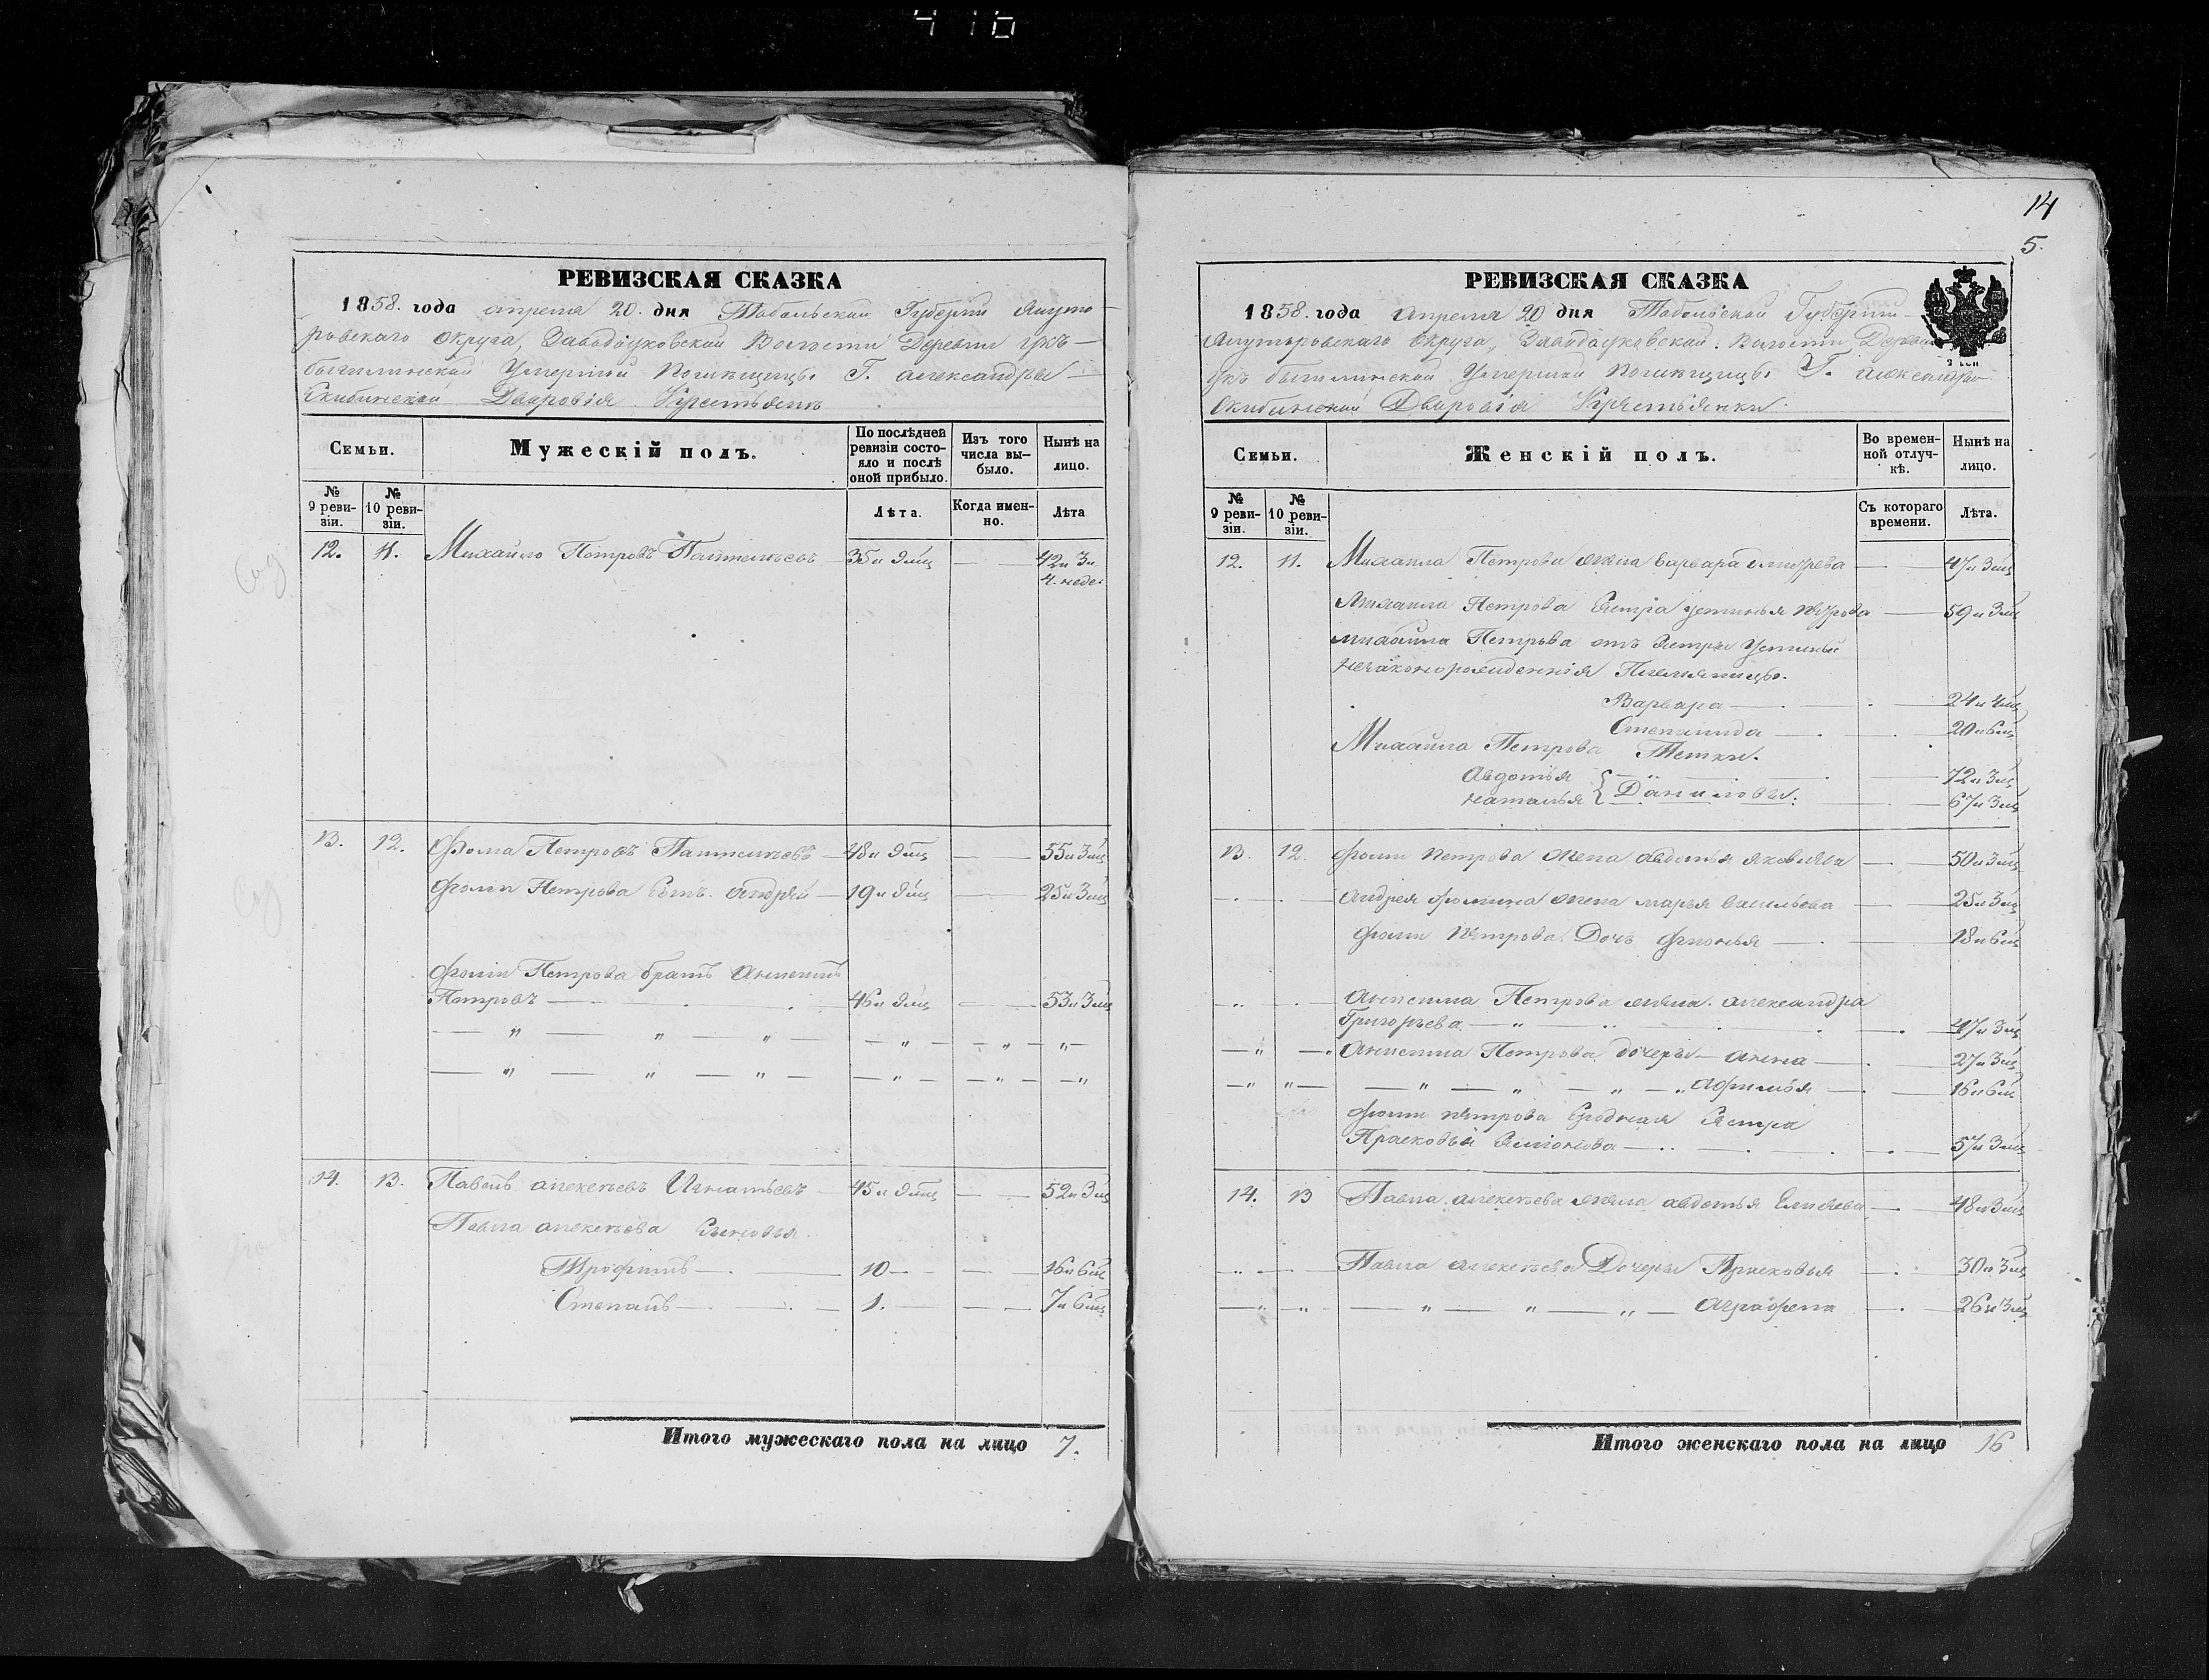 416
РЕВИЗСКАЯ СКАЗКА
1858. года апреля 20. дня Тобольской Губернии Ялуто-
ровскаго Округа, Заводоуковской Волости Деревни
Умершей Помѣщицы Г. Александры
Скибинской Дворовыя Крестьяне
Семьи.
Мужескій полъ.
По послѣдней ревизіи состо-яло и послѣ оной прибыло.
Изъ того числа вы-было.
Нынѣ на лицо.
№ 9 реви-зіи.
№ 10 реви-зіи.
Лѣта.
Когда имен-но.
Лѣта
12. 11. Михайло Петровъ Пантелѣевъ 35 и 9 мц — — 42 и 3 и
4. недел
13. 12. Фома Петровъ Пантелѣевъ — 48 и 9 мц — — 55 и 3 мц
Фомы Петрова Сынъ Андрей — 19 и 9 мц — — 25 и 3 мц
Фомы Петрова братъ Анисимъ
Петровъ — 46 и 9 мц — — 53 и 3 мц
— „ — „ — „ — — „ — — „ — — „ —
— „ — „ — „ — — „ — — „ — — „
14. 13. Павелъ Алексѣевъ Игнатьевъ — 45 и 9 мц — — 52 и 3 мц
Павла Алексѣева Сыновья
Трофимъ — 10 — — — 16 и 6 мц
Степанъ — 1. — — — 7 и 6 мц
Итого мужескаго пола на лицо 7.
14
5.
РЕВИЗСКАЯ СКАЗКА
1858. года Апреля 20 дня Тобольской Губернии
Ялуторовскаго Округа, Заводоуковской. Волости Деревни
Умершей Помѣщицы Г. Александры
Скибинской Дворовыя Крестьянки.
Семьи.
Женскій полъ.
Во времен-ной отлуч-кѣ.
Нынѣ на лицо.
№ 9 реви-зіи.
№ 10 реви-зіи.
Съ котораго времени.
Лѣта.
12. 11. Михаила Петрова жена Варвара — — 47 и 3 мц
Михаила Петрова Сестра Устинья Петрова — 59 и 3 мц
Михаила Петрова отъ Сестры Устиньи
незаконорожденныя Племянницы.
Варвара — — 24 и 4 мц
Степанида — — 20 и 6 мц
Михаила Петрова Тетки.
Авдотья { — 72 и 3 мц
Наталья { Даниловы. — 67 и 3 мц
13. 12. Фомы Петрова жена Авдотья Яковлева — — 50 и 3 мц
— . — Андрея Фомина жена Марья Васильева — — 25 и 3 мц
Фомы Петрова Дочь — — 18 и 6 мц
— . — Анисима Петрова жена. Александра
Григорьева — „ — 47 и 3 мц
— „ — „ Анисима Петрова дочери — Анна — — 27 и 3 мц
— „ „ — — „ — „ — „ — „ Афимья — — 16 и 6 мц
Фомы Петрова Сродная Сестра
Прасковья — — 57 и 3 мц
14. 13 Павла Алексѣева жена Авдотья Елисеева — — 48 и 3 мц
— . — Павла Алексѣева Дочери Прасковья — — 30 и 3 мц
— „ — „ — „ — „ — „ — Аграфена — — 26 и 3 мц
Итого женскаго пола на лицо 16